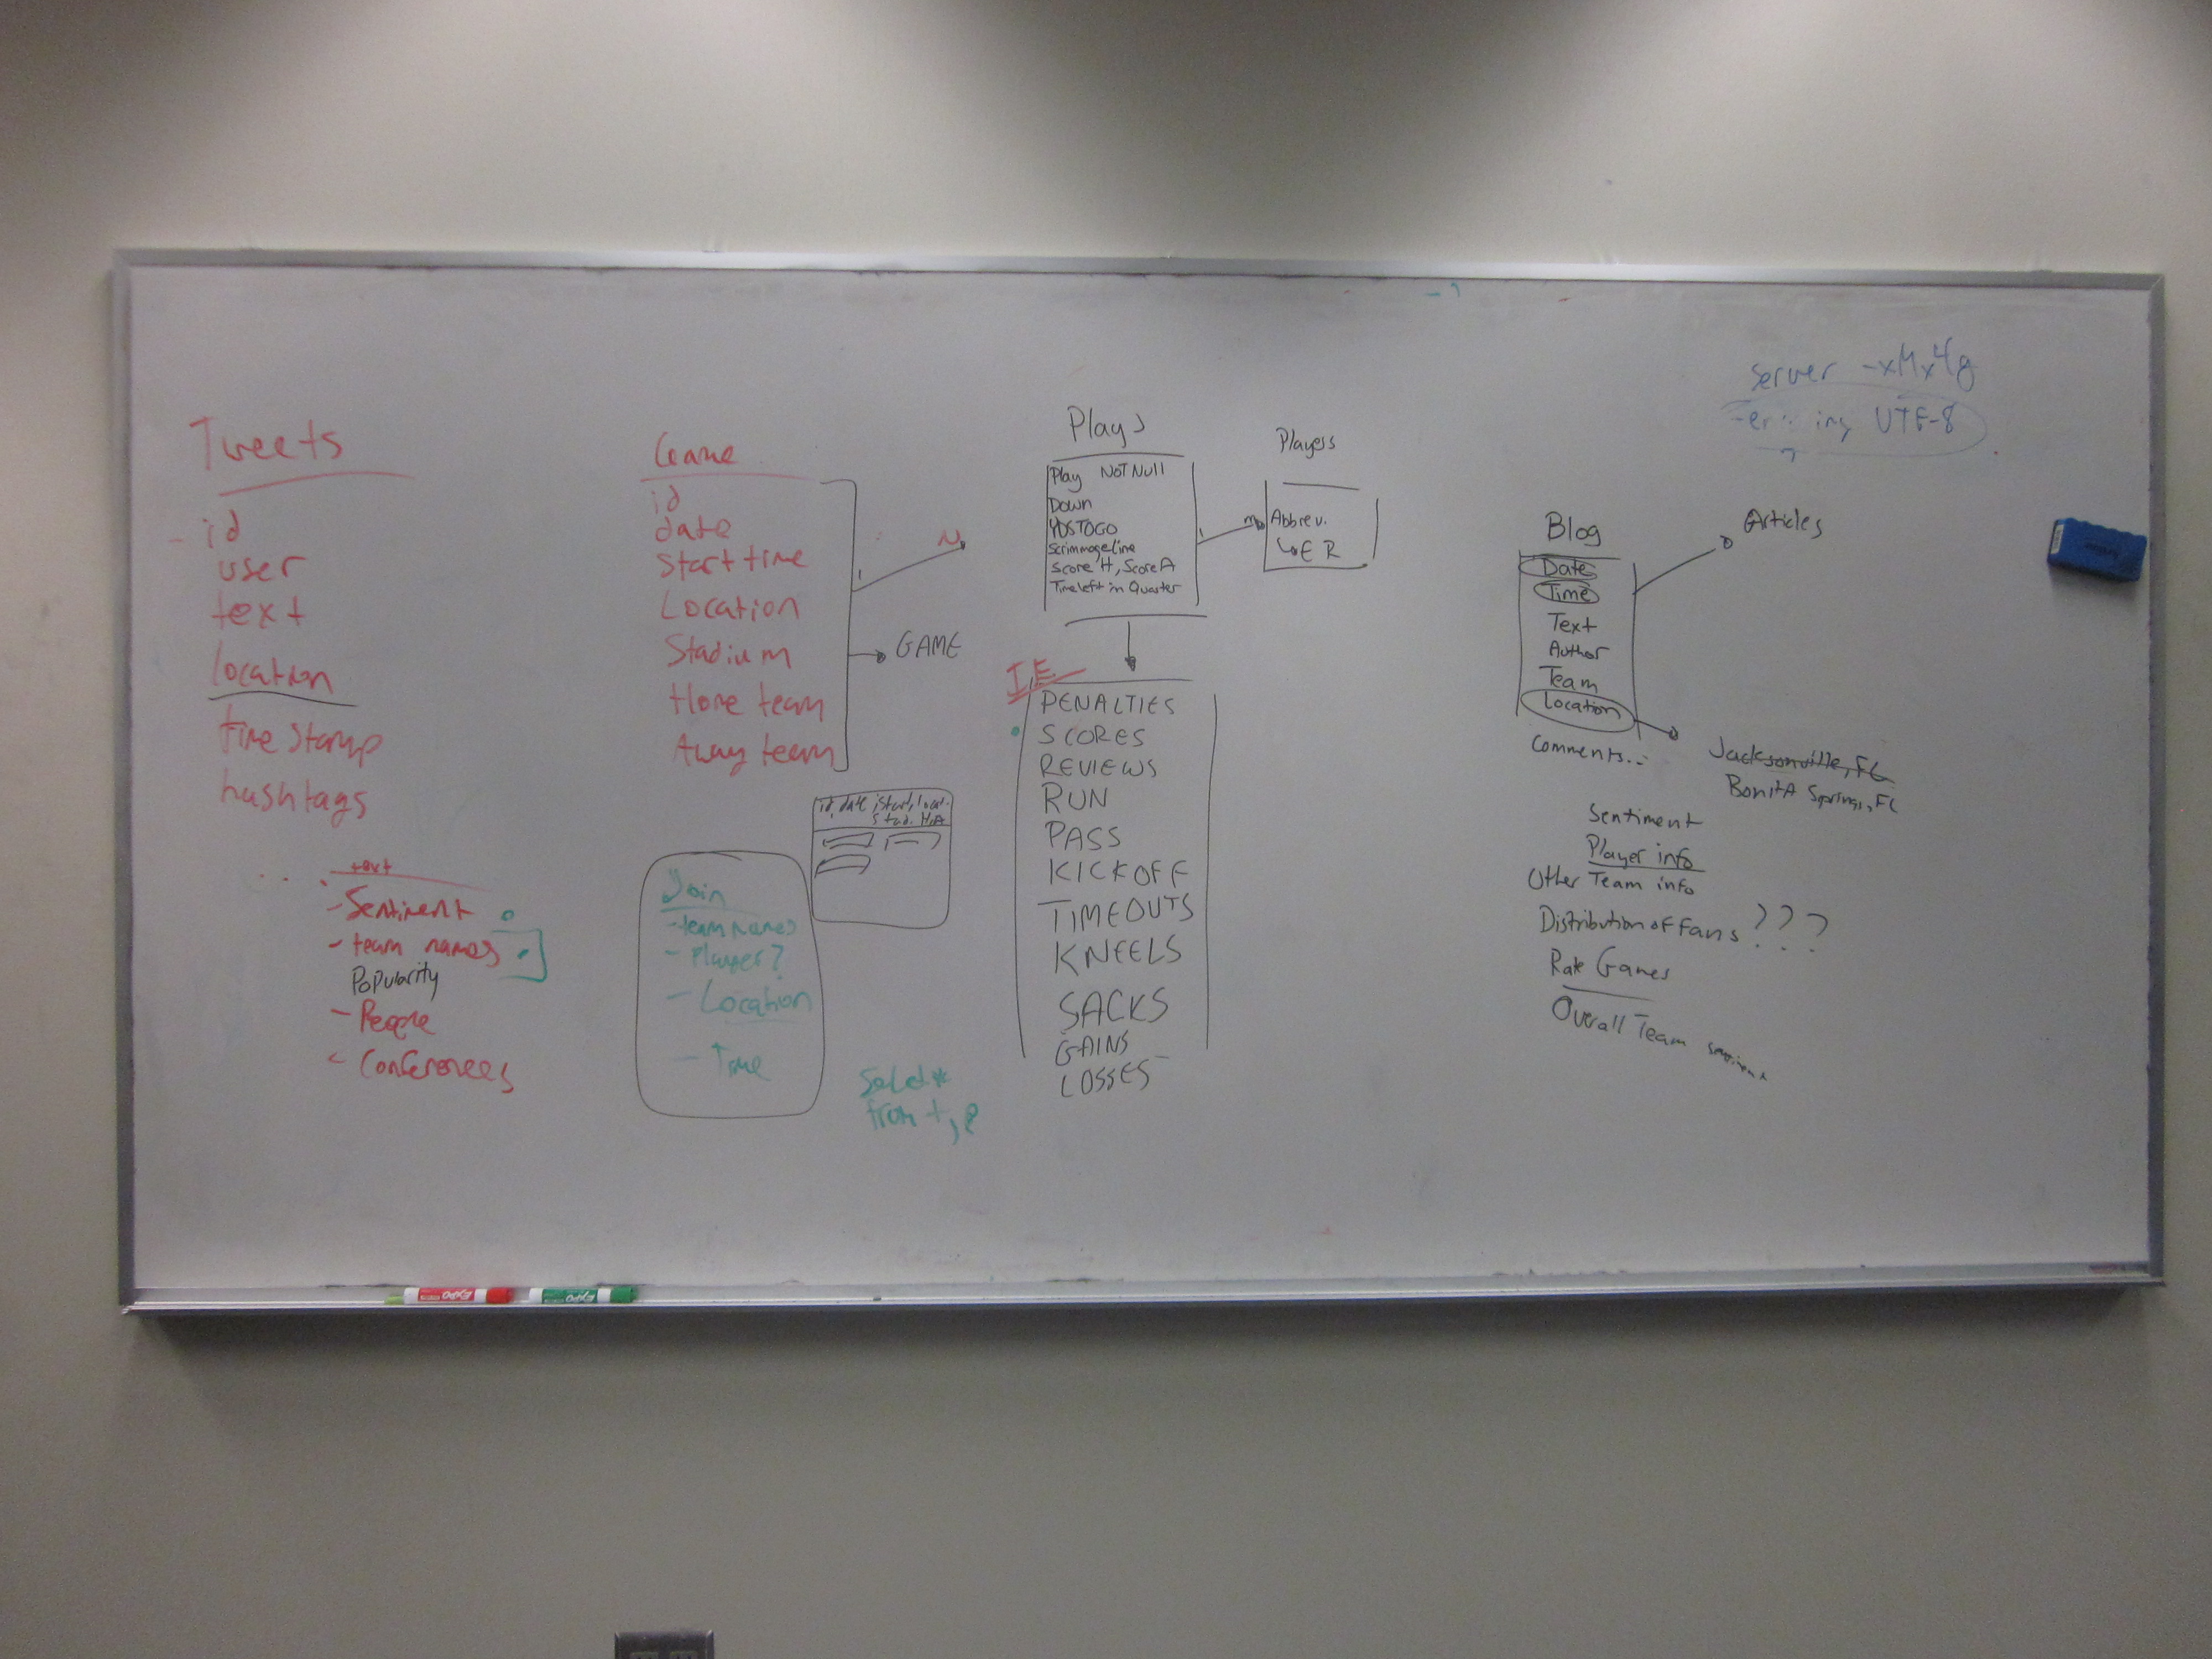 Tweets
id
user
text
location
time stamp
hashtags
text
- Sentiment
- team names
Popularity
- People
- Conferences
Game
id
date
Start time
Location
Stadium
Home team
Away team
1
N
GAME
id, date, start, locat.
stad. H, A
Join
- team names
- Player?
- Location
- Time
Select *
from t, g
Plays
Play NOT NULL
Down
YDSTOGO
Scrimmageline
Score H, Score A
Time left in Quarter
1
m
Players
Abbrev.
↳ E R
I.E.
PENALTIES
SCORES
REVIEWS
RUN
PASS
KICKOFF
TIMEOUTS
KNEELS
SACKS
GAINS
LOSSES
server -xMx4g
UTF-8
Blog
Date
Time
Text
Author
Team
Location
Comments...
Articles
Jacksonville, FL
Bonita Springs, FL
Sentiment
Player info
Other Team info
Distribution of Fans ???
Rate Games
Overall Team sentiment
EXPO
EXPO